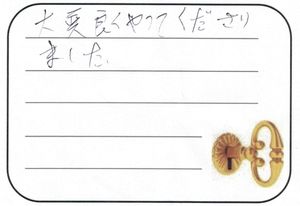 大変良くやってくださり
ました